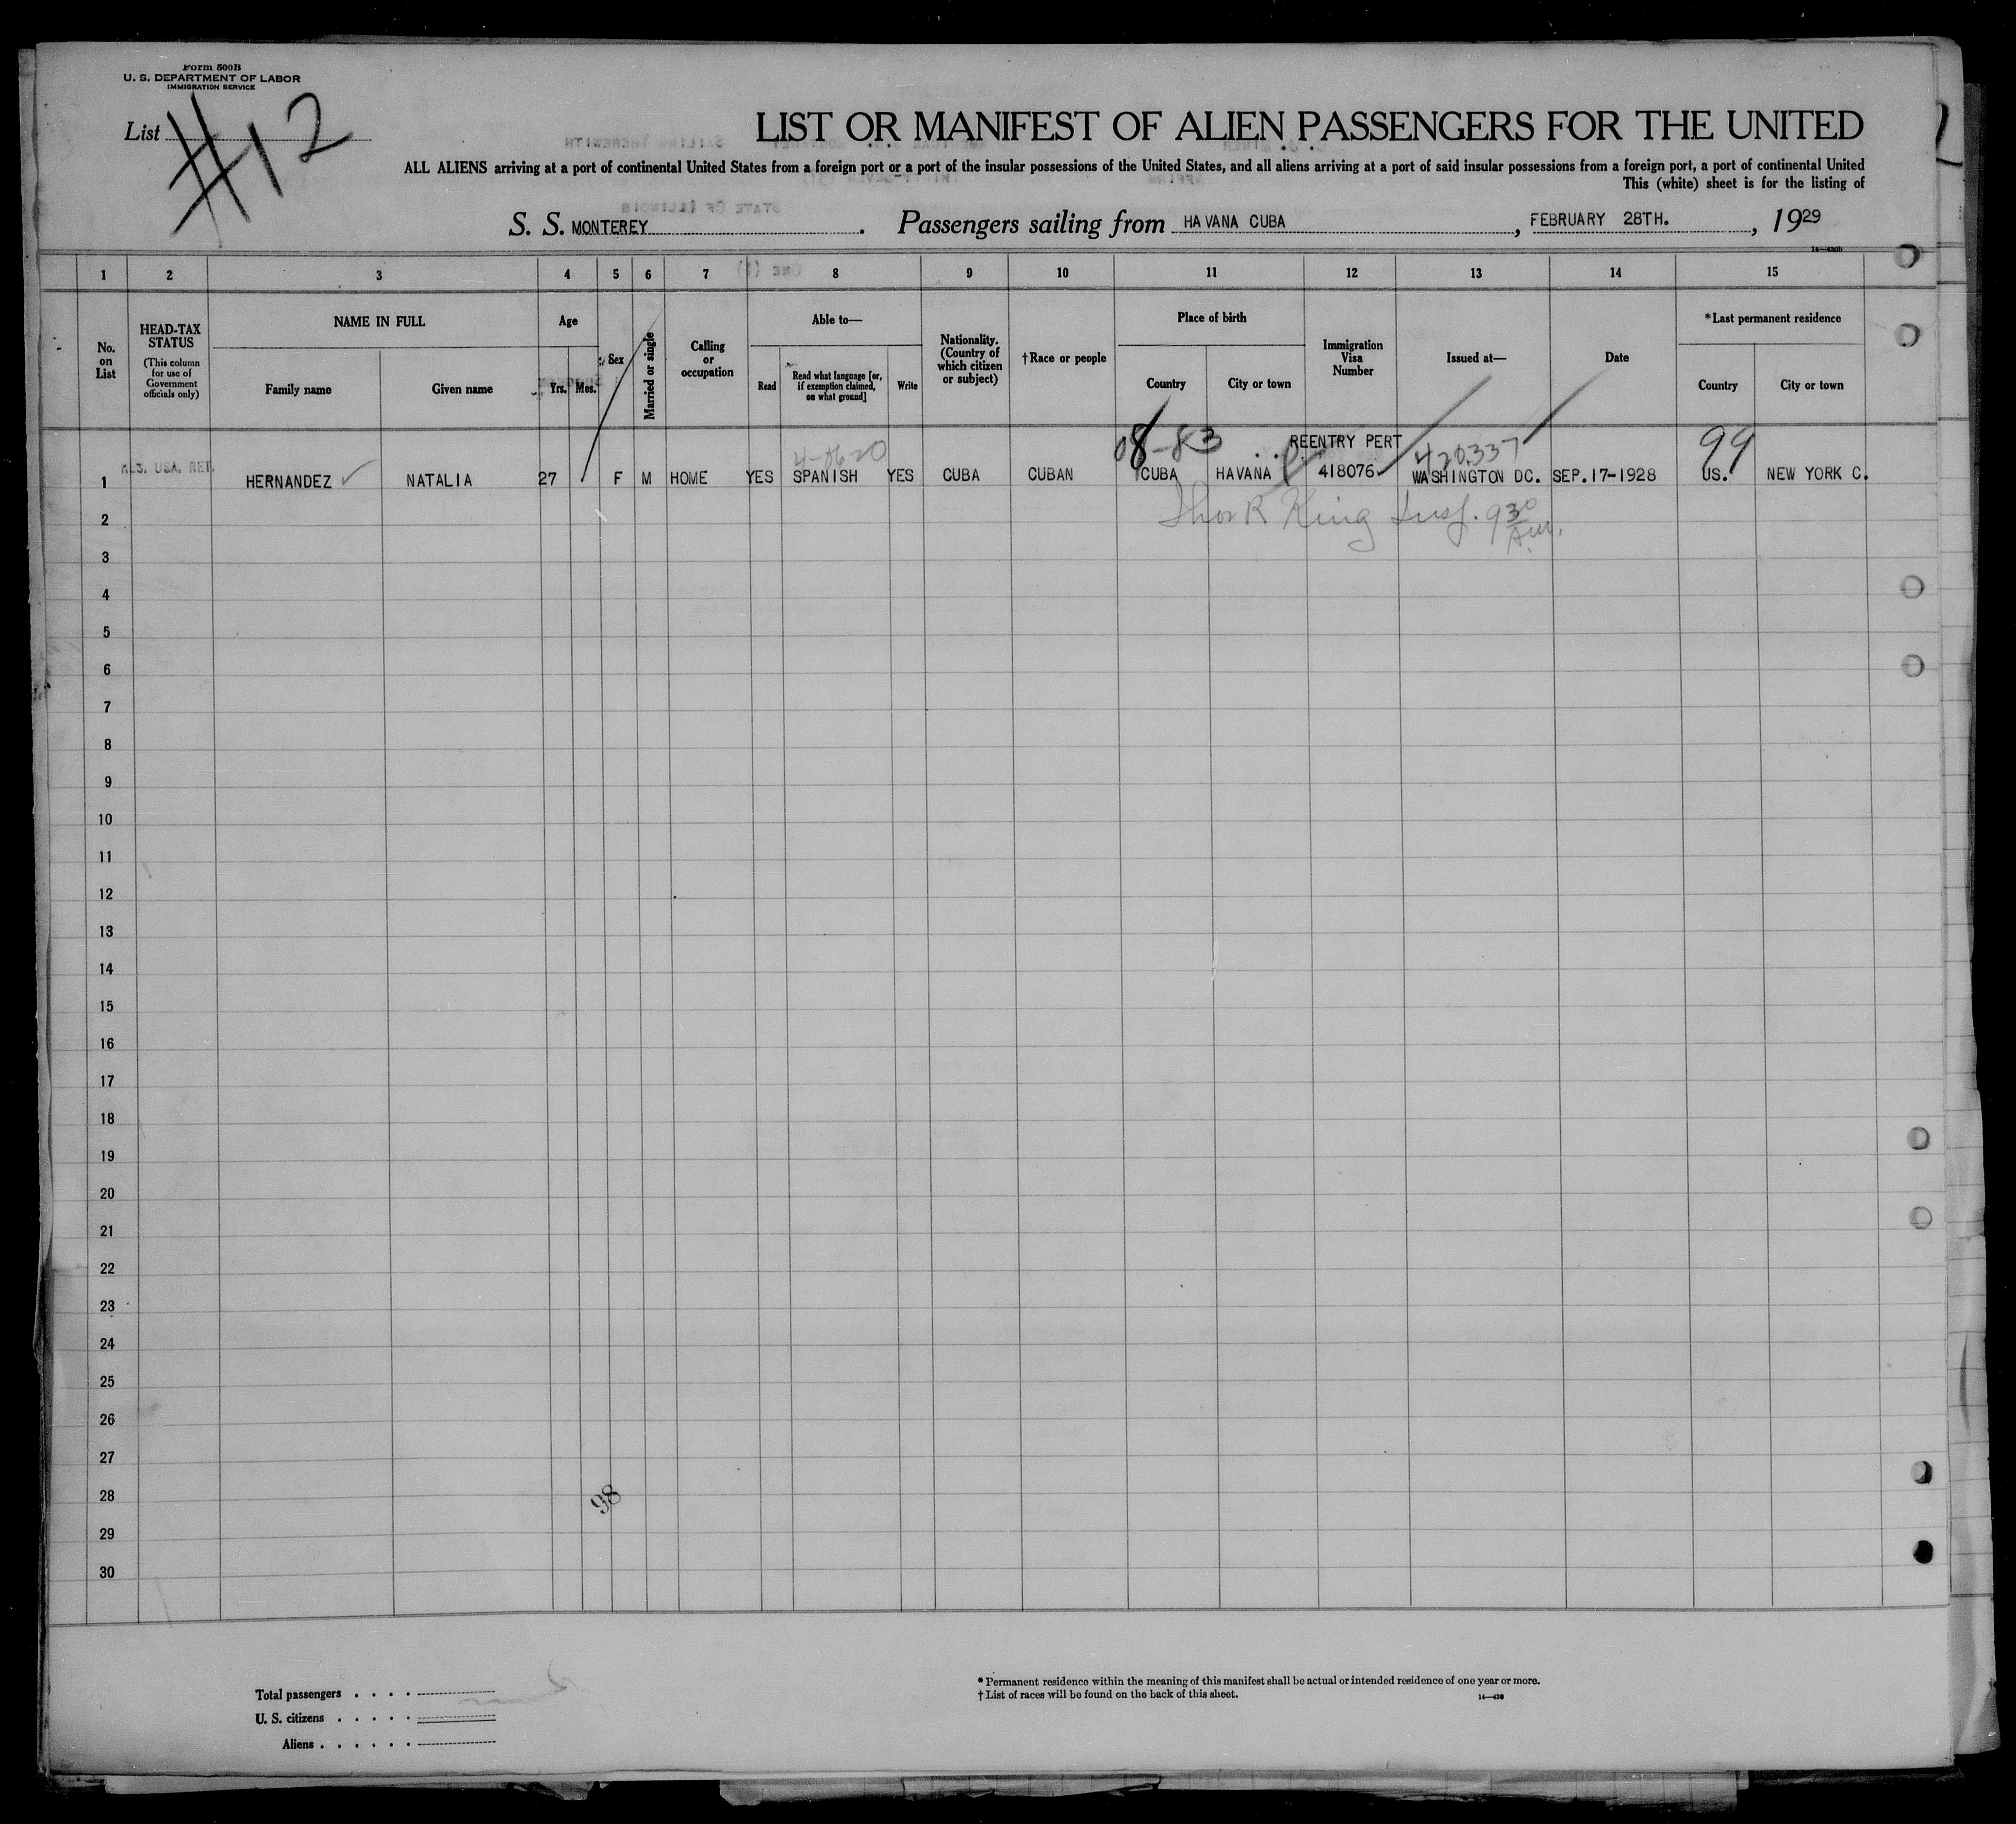 Form 500B
U. S. DEPARTMENT OF LABOR
IMMIGRATION SERVICE
List #12
LIST OR MANIFEST OF ALIEN PASSENGERS FOR THE UNITED
ALL ALIENS arriving at a port of continental United States from a foreign port or a port of the insular possessions of the United States, and all aliens arriving at a port of said insular possessions from a foreign port, a port of continental United
This (white) sheet is for the listing of
S. S. MONTEREY. Passengers sailing from HAVANA CUBA, FEBRUARY 28TH., 1929
1 2 3 4 5 6 7 8 9 10 11 12 13 14 15
No. on List
HEAD-TAX STATUS
(This column for use of Government officials only)
NAME IN FULL
Family name Given name
Age
Yrs. Mos.
Sex
Married or single
Calling or occupation
Able to—
Read Read what language [or, if exemption claimed, on what ground] Write
Nationality. (Country of which citizen or subject)
†Race or people
Place of birth
Country City or town
Immigration Visa Number
Issued at—
Date
*Last permanent residence
Country City or town
08-83 REENTRY PERT 420337 99
1 USA. RET. HERNANDEZ NATALIA 27 F M HOME YES SPANISH YES CUBA CUBAN CUBA HAVANA 418076 WASHINGTON DC. SEP.17-1928 US. NEW YORK C.
King Insp. 9 30 AM.
2
3
4
5
6
7
8
9
10
11
12
13
14
15
16
17
18
19
20
21
22
23
24
25
26
27
28
98
29
30
Total passengers . . . .
U. S. citizens . . . . .
Aliens . . . . . .
* Permanent residence within the meaning of this manifest shall be actual or intended residence of one year or more.
† List of races will be found on the back of this sheet.